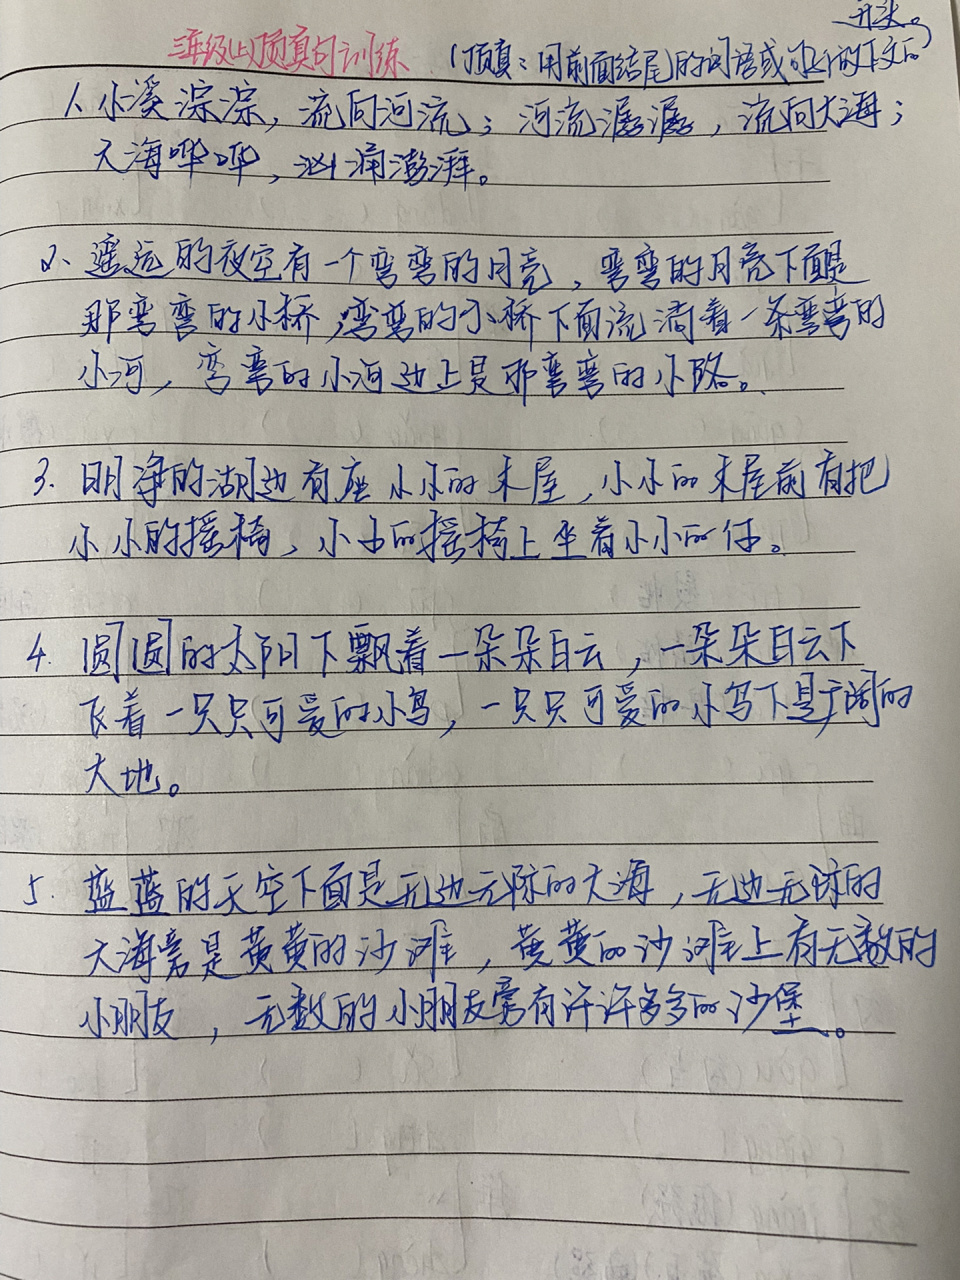 开头。
三年级(上)顶真句训练 (顶真:用前面结尾的词语或句子做下文的)
1、小溪淙淙,流向河流;河流潺潺,流向大海;
大海哗哗,汹涌澎湃。
2、遥远的夜空有一个弯弯的月亮,弯弯的月亮下面是
那弯弯的小桥,弯弯的小桥下面流淌着一条弯弯的
小河,弯弯的小河边上是那弯弯的小路。
3. 明净的湖边有座小小的木屋,小小的木屋前有把
小小的摇椅,小小的摇椅上坐着小小的
4. 圆圆的太阳下飘着一朵朵白云,一朵朵白云下
飞着一只只可爱的小鸟,一只只可爱的小鸟下是广阔的
大地。
5. 蓝蓝的天空下面是无边无际的大海,无边无际的
大海旁是黄黄的沙滩,黄黄的沙滩上有无数的
小朋友,无数的小朋友旁有许许多多的沙堡。